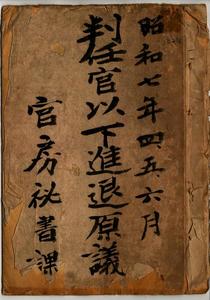 昭和七年四、五、六月
判任官以下進退原議
官房祕書課